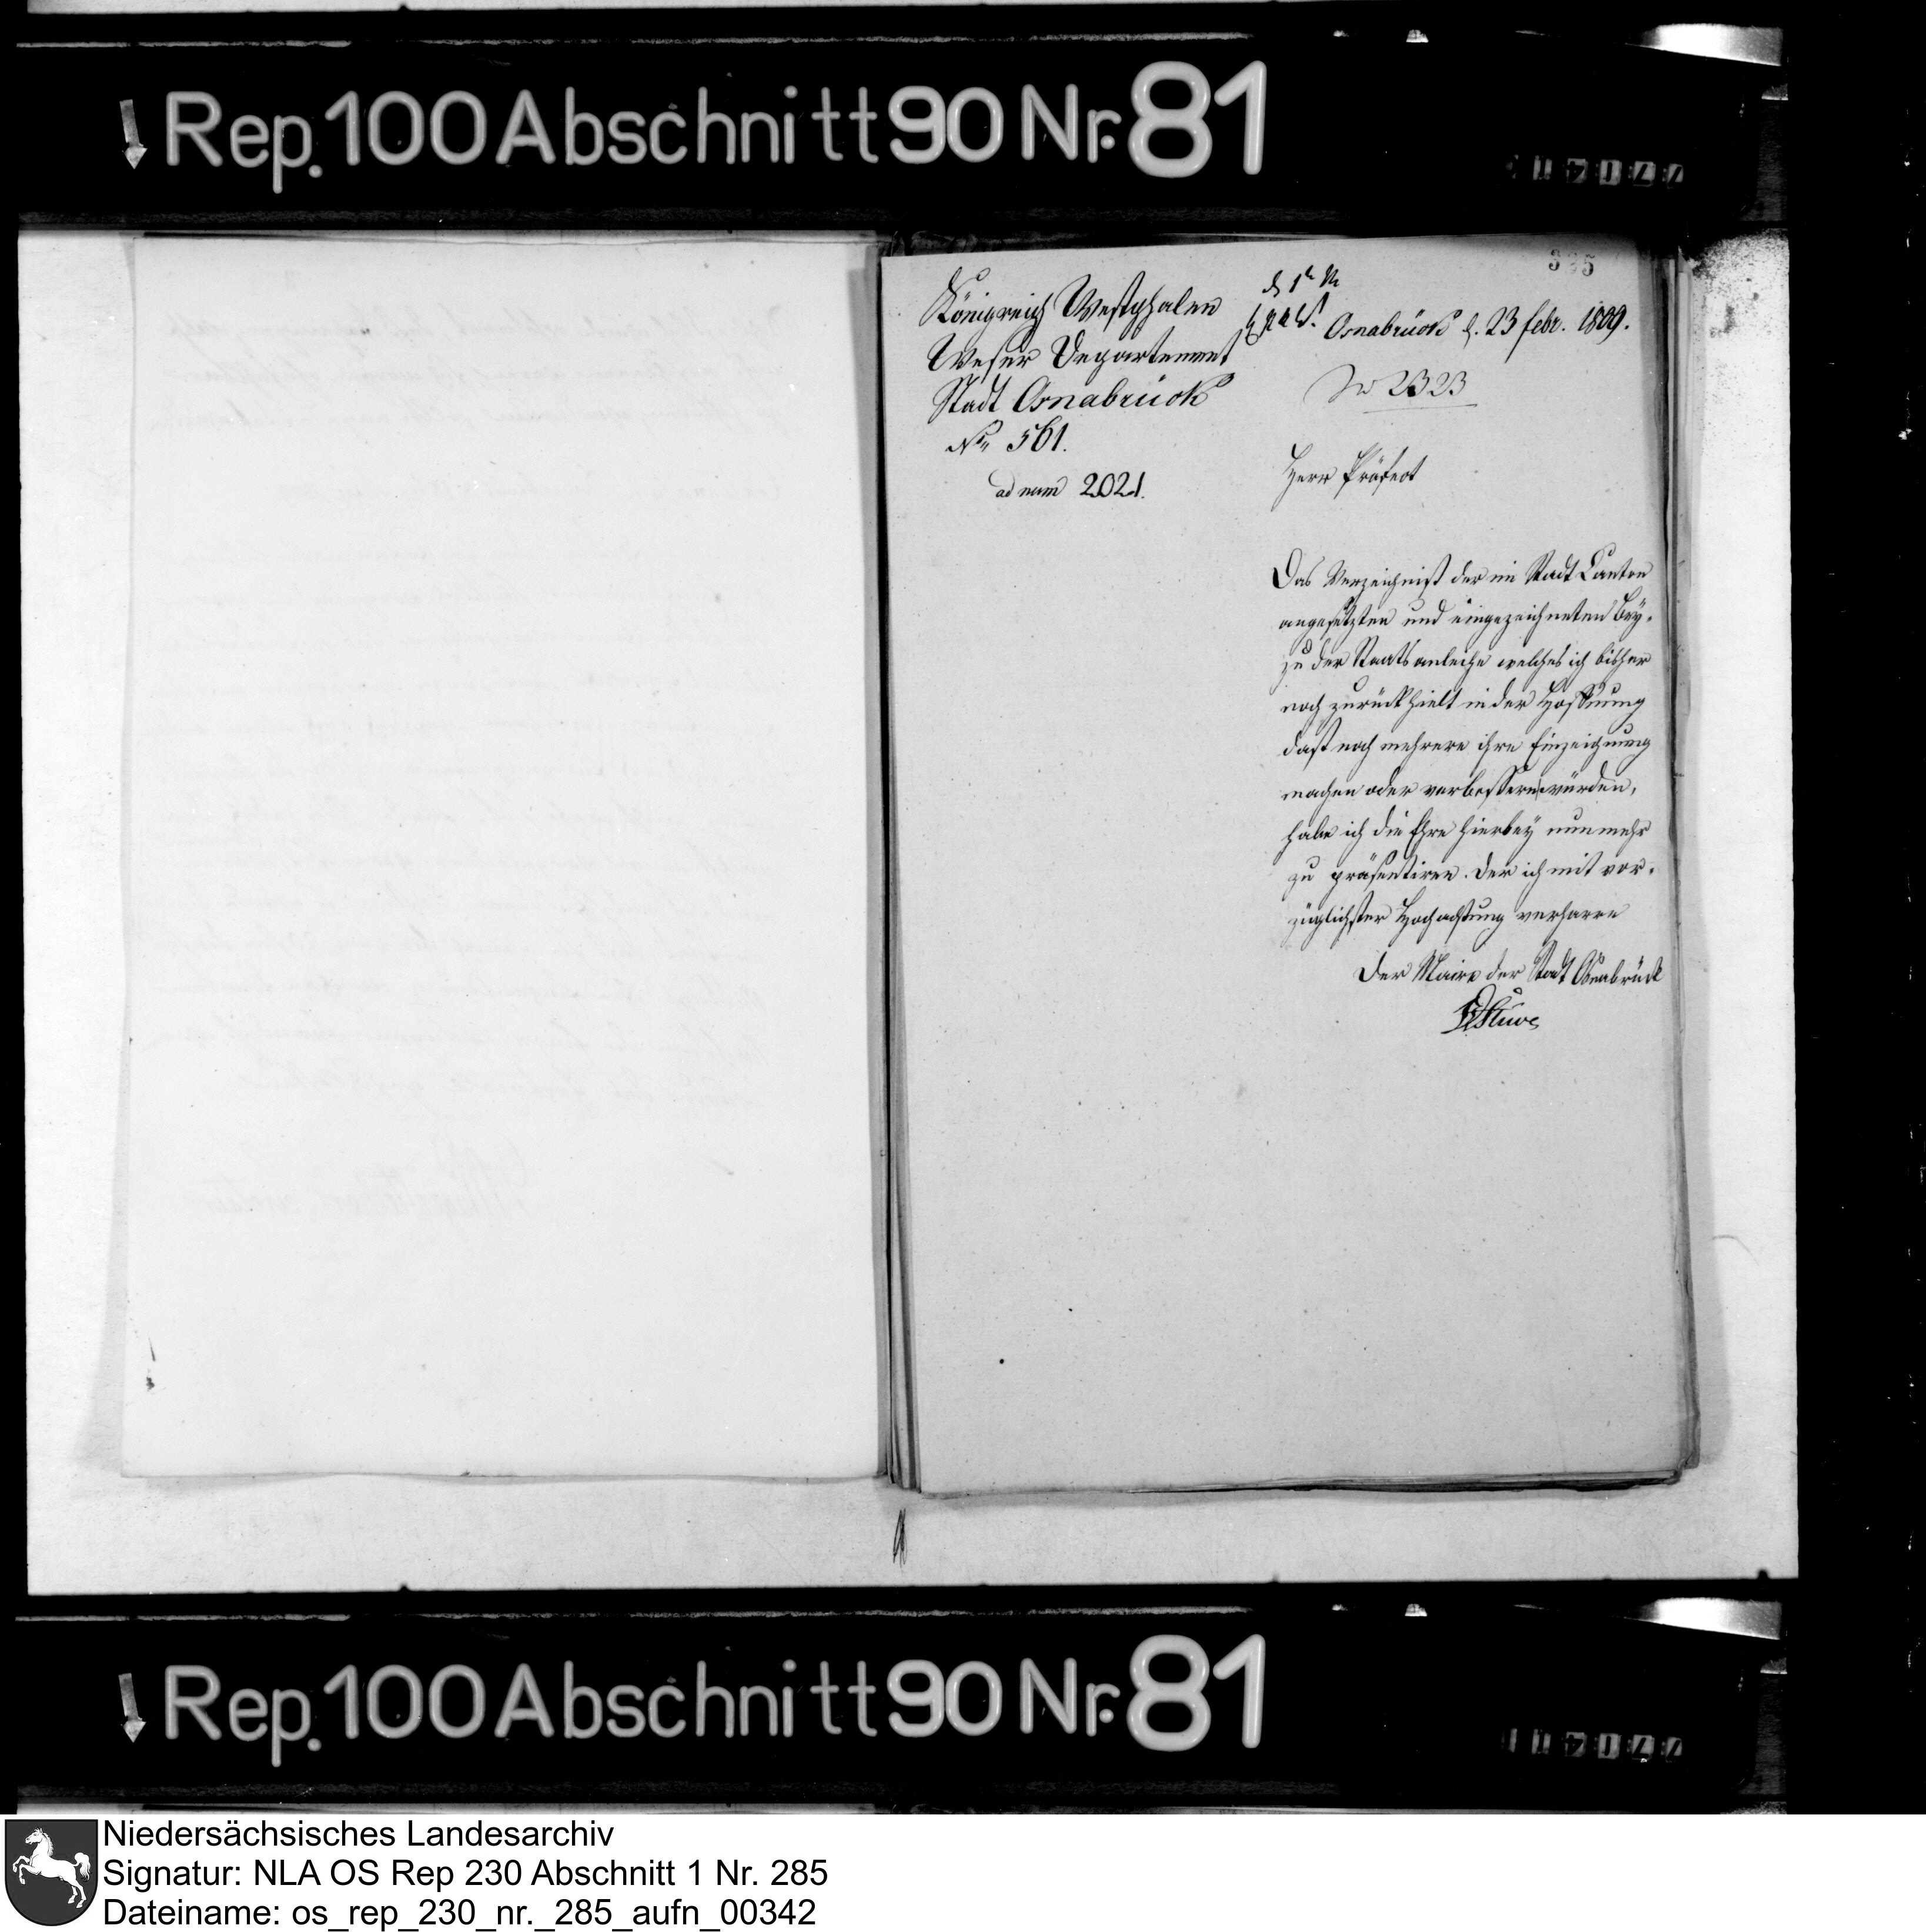 Rep. 100 Abschnitt 90 Nr. 81
Königreich Westphalen
Weser Departement
Stadt Osnabrück
No. 561.
ad num 2021.
Osnabrück d. 23 febr. 1809.
2323
Herr Präfect
Das Verzeichniß der im Stadt Canton
angesetzten und eingezeichneten Bey-
zu der Staatsanleihe welches ich bisher
noch zurückhielt in der Hoffnung
daß noch mehrere ihre Einzeichnung
machen oder verbessern würden,
habe ich die Ehre hierbey nunmehr
zu präsentiren. Der ich mit vor-
züglichster Hochachtung verharre
Der Maire der Stadt Osnabrück
Stüve
Rep. 100 Abschnitt 90 Nr. 81
Niedersächsisches Landesarchiv
Signatur: NLA OS Rep 230 Abschnitt 1 Nr. 285
Dateiname: os_rep_230_nr._285_aufn_00342